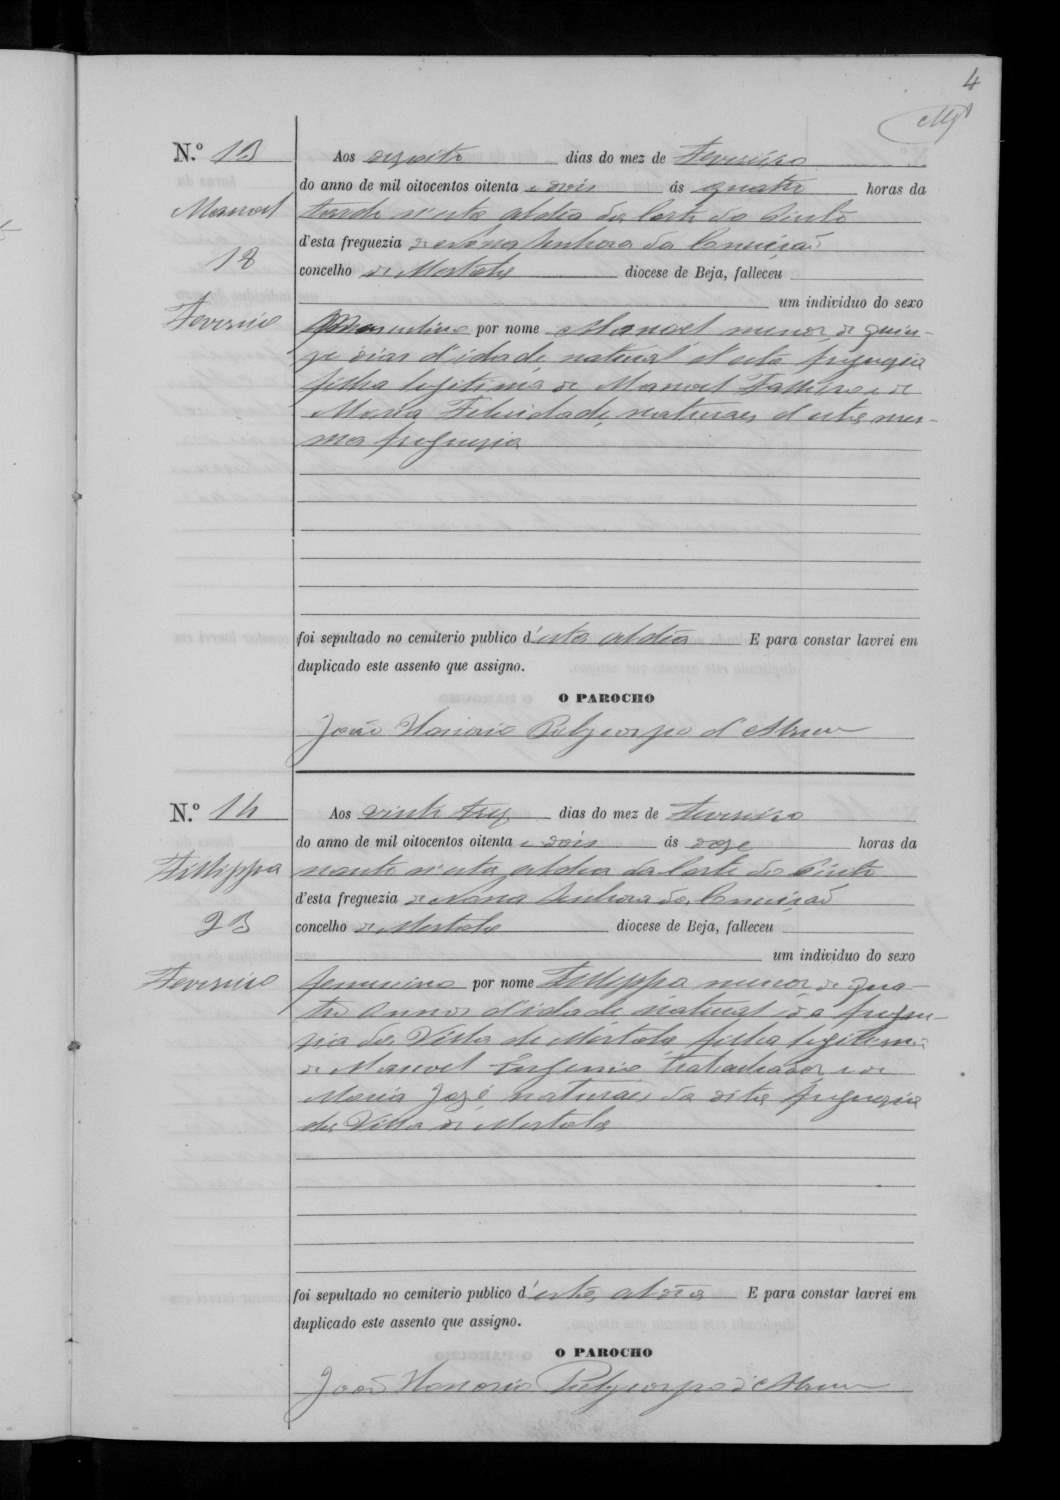 4
N.º 13
Aos desoito dias do mez de Fevereiro
do anno de mil oitocentos oitenta e dois ás quatro horas da
Manoel
tarde n'esta aldêa da Corte do Pinto
18
d'esta freguezia de Nossa Senhora da Conceição
concelho de Mertola diocese de Beja, falleceu
um individuo do sexo
Fevereiro
Masculino por nome Manoel menor de quin-
ze dias d'idade, natural d'esta freguezia
filho legitimo de Manoel e de
Maria Felicidade, naturaes d'esta mes-
ma freguezia
foi sepultado no cemiterio publico d'esta aldêa E para constar lavrei em
duplicado este assento que assigno.
O PAROCHO
João Honorio Polycarpo d'Abreu
N.º 14
Aos vinte trez dias do mez de Fevereiro
do anno de mil oitocentos oitenta e dois ás doze horas da
Fillippa
noute n'esta aldêa da Corte do Pinto
23
d'esta freguezia de Nossa Senhora da Conceição
concelho de Mertola diocese de Beja, falleceu
um individuo do sexo
Fevereiro
femenino por nome Fillippa menor de qua-
tro annos d'idade natural da fregue-
zia da Villa de Mertola filha legitima
de Manoel Eugenio trabalhador e de
Maria José naturaes da dita freguezia
da Villa de Mertola
foi sepultado no cemiterio publico d'esta aldêa E para constar lavrei em
duplicado este assento que assigno.
O PAROCHO
João Honorio Polycarpo d'Abreu